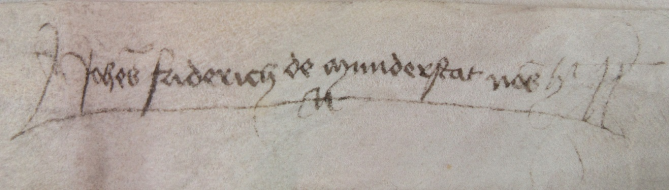 Johes friderich de munderstat nots